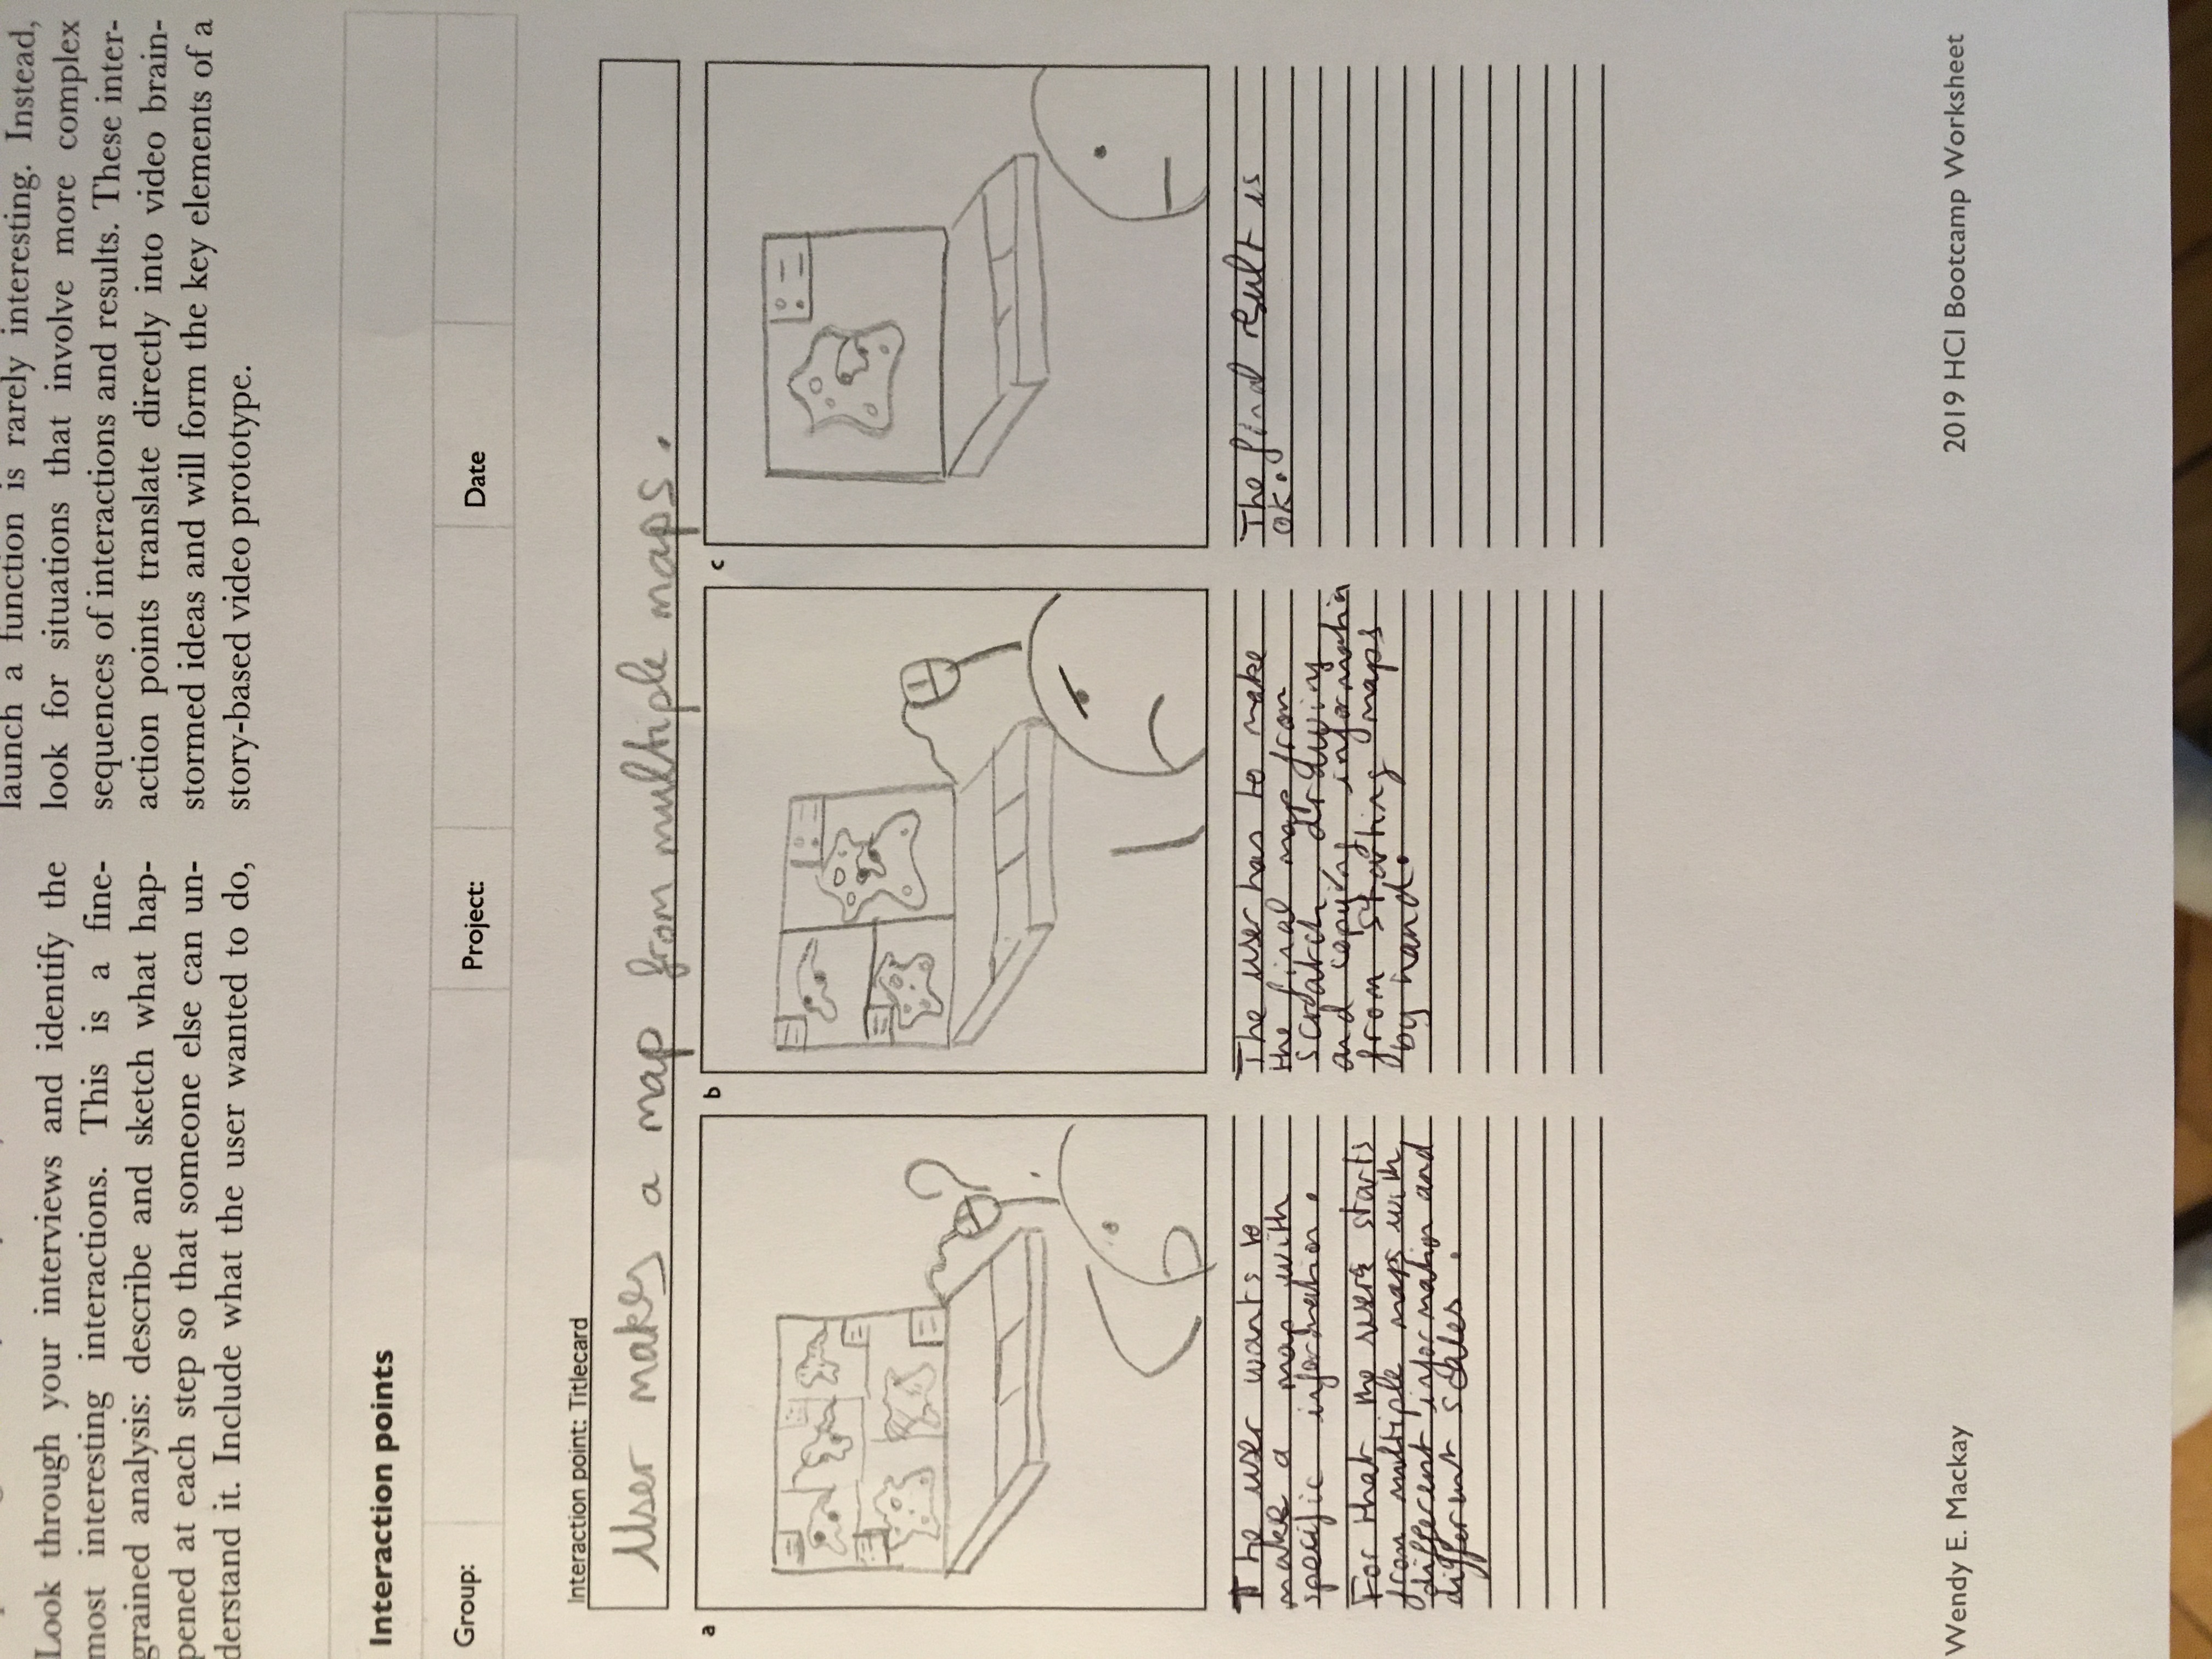 Look through your interviews and identify the
most interesting interactions. This is a fine-
grained analysis: describe and sketch what hap-
pened at each step so that someone else can un-
derstand it. Include what the user wanted to do,
launch a function is rarely interesting. Instead,
look for situations that involve more complex
sequences of interactions and results. These inter-
action points translate directly into video brain-
stormed ideas and will form the key elements of a
story-based video prototype.
Interaction points
Group:
Project:
Date
Interaction point: Titlecard
User makes a map from multiple maps.
a
b
c
?
The user wants to
make a map with
specific information.
For that the user starts
from multiple maps with
different information and
different scales.
The user has to make
the final map from
scratch drawing
and copying information
from starting maps
by hand.
The final result is
ok.
Wendy E. Mackay
2019 HCI Bootcamp Worksheet